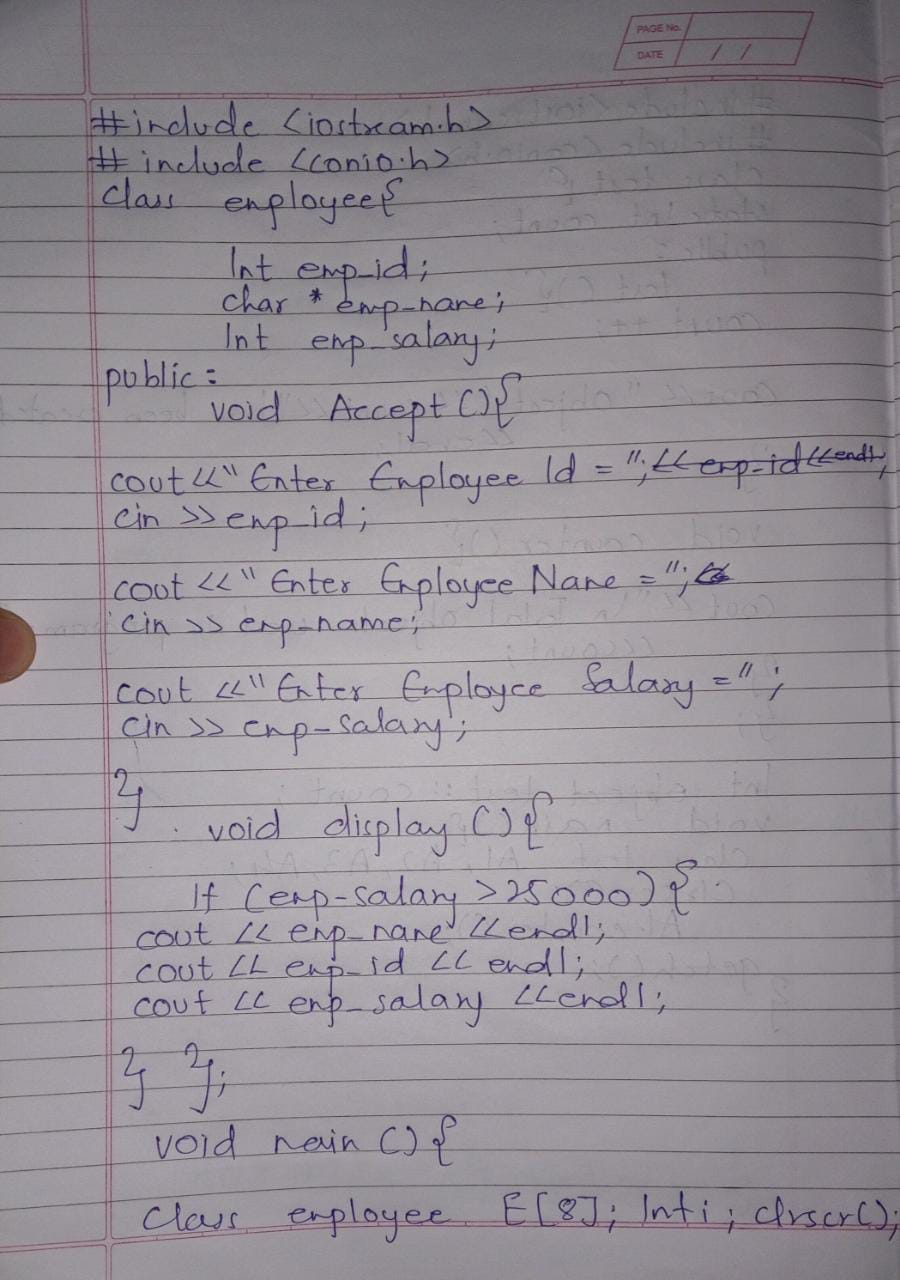 PAGE No.
DATE / /
#include <iostream.h>
# include <conio.h>
Class employee{
Int emp_id;
char * emp_name;
Int emp_salary;
public:
void Accept (){
cout<<" Enter Employee Id = "; << emp_id <<endl;
cin >> emp_id;
cout << " Enter Employee Name = ";
cin >> emp_name;
cout <<" Enter Employee Salary = " ;
cin >> emp_salary;
}
void display () {
If (emp_salary > 25000) {
cout << emp_name <<endl;
cout << emp_id << endl;
cout << emp_salary <<endl;
} };
void main () {
Class employee E[8]; Int i; clrscr();